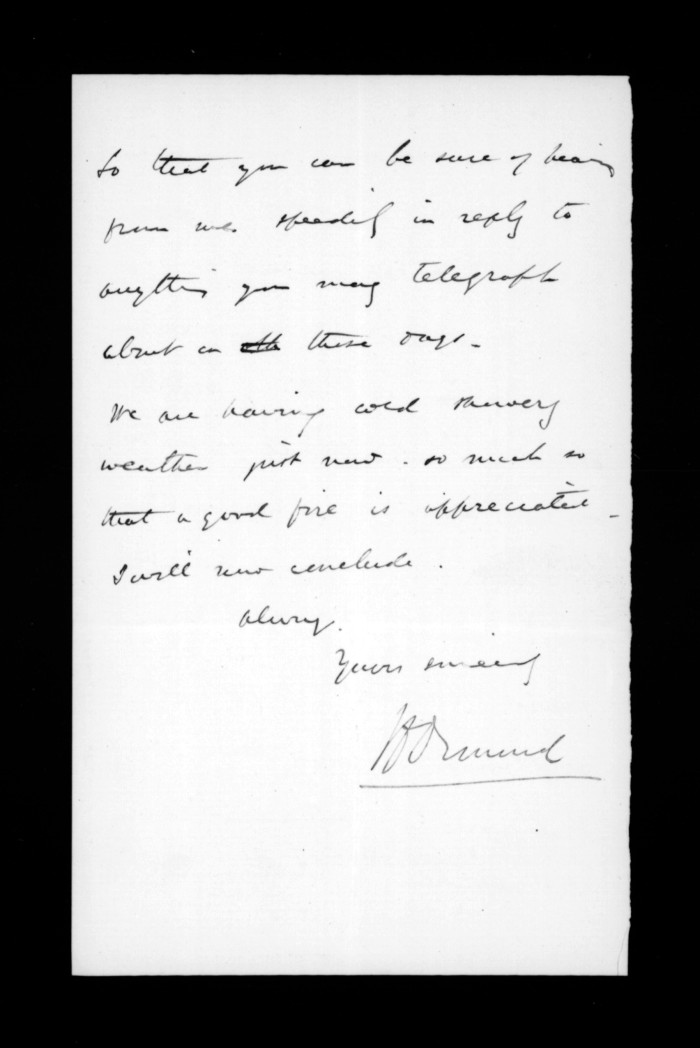 So that you can be sure of hearing
from me speedily in reply to
anything you may telegraph
about on these days.
We are having cold showery
weather just now. so much so
that a good fire is appreciated.
I will now conclude.
Always.
Yours sincerely